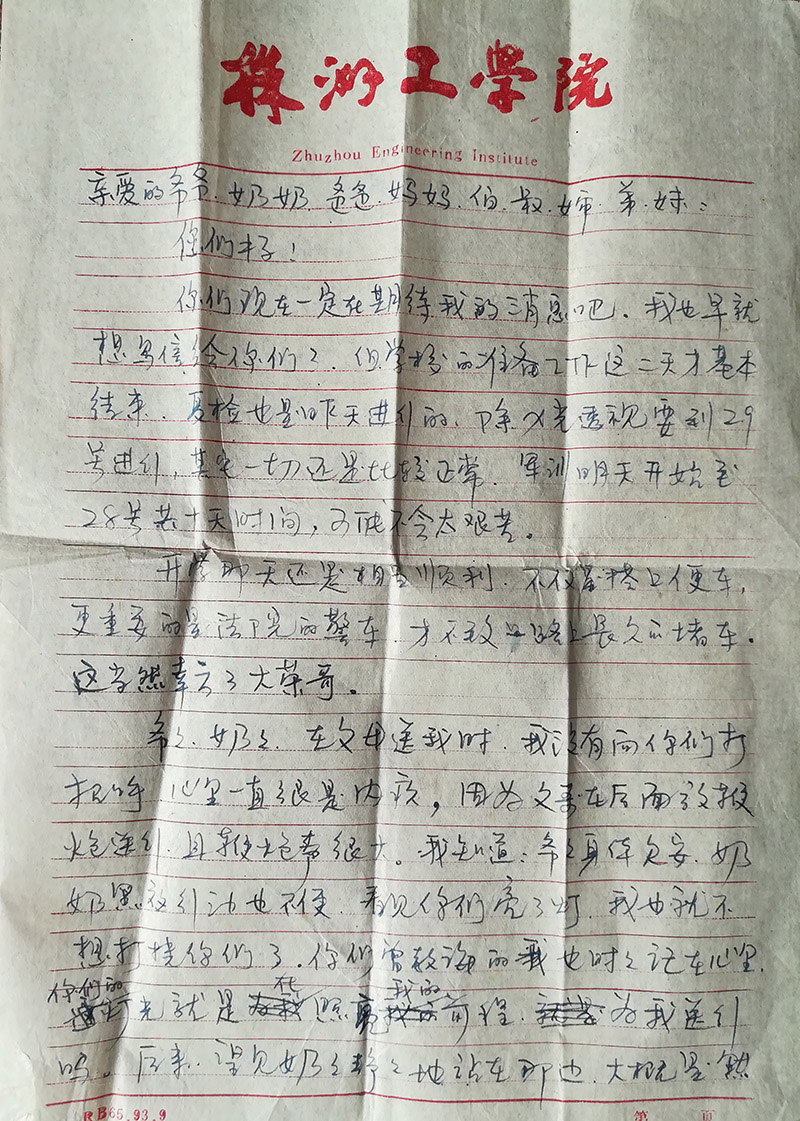 株洲工学院
Zhuzhou Engineering Institute
亲爱的爷爷.奶奶.爸爸.妈妈.伯.叔.婶.弟.妹：
你们好！
你们现在一定在期待我的消息吧.我也早就
想写信给你们了.但学校的准备工作这二天才基本
结束.复检也是昨天进行的.除X光透视要到29
号进行,其它一切还是比较正常.军训明天开始至
28号共十天时间,可能不会太艰苦。
开学那天还是相当顺利.不仅是搭上便车,
更重要的是法院的警车.才不致出路上长久的堵车.
这当然幸亏了大荣哥。
爷々.奶々.在父母送我时.我没有向你们打
招呼 心里一直很是内疚,因为父亲在后面放鞭
炮送行.且鞭炮声很大。我知道:爷々身体欠安.奶
奶黑夜行动也不便.看见你们亮了灯.我也就不
想打搅你们了.你们曾教诲的我也时々记在心里.
你们的光就是在照亮我的前程.为我送行
吗。后来.望见奶々静々地站在那边.大概是
RB65.93.9
第 页